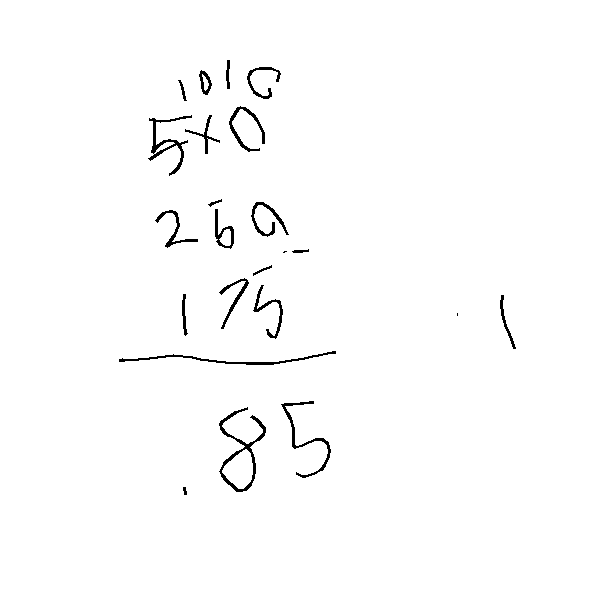 1010
5+0
250
175
.85